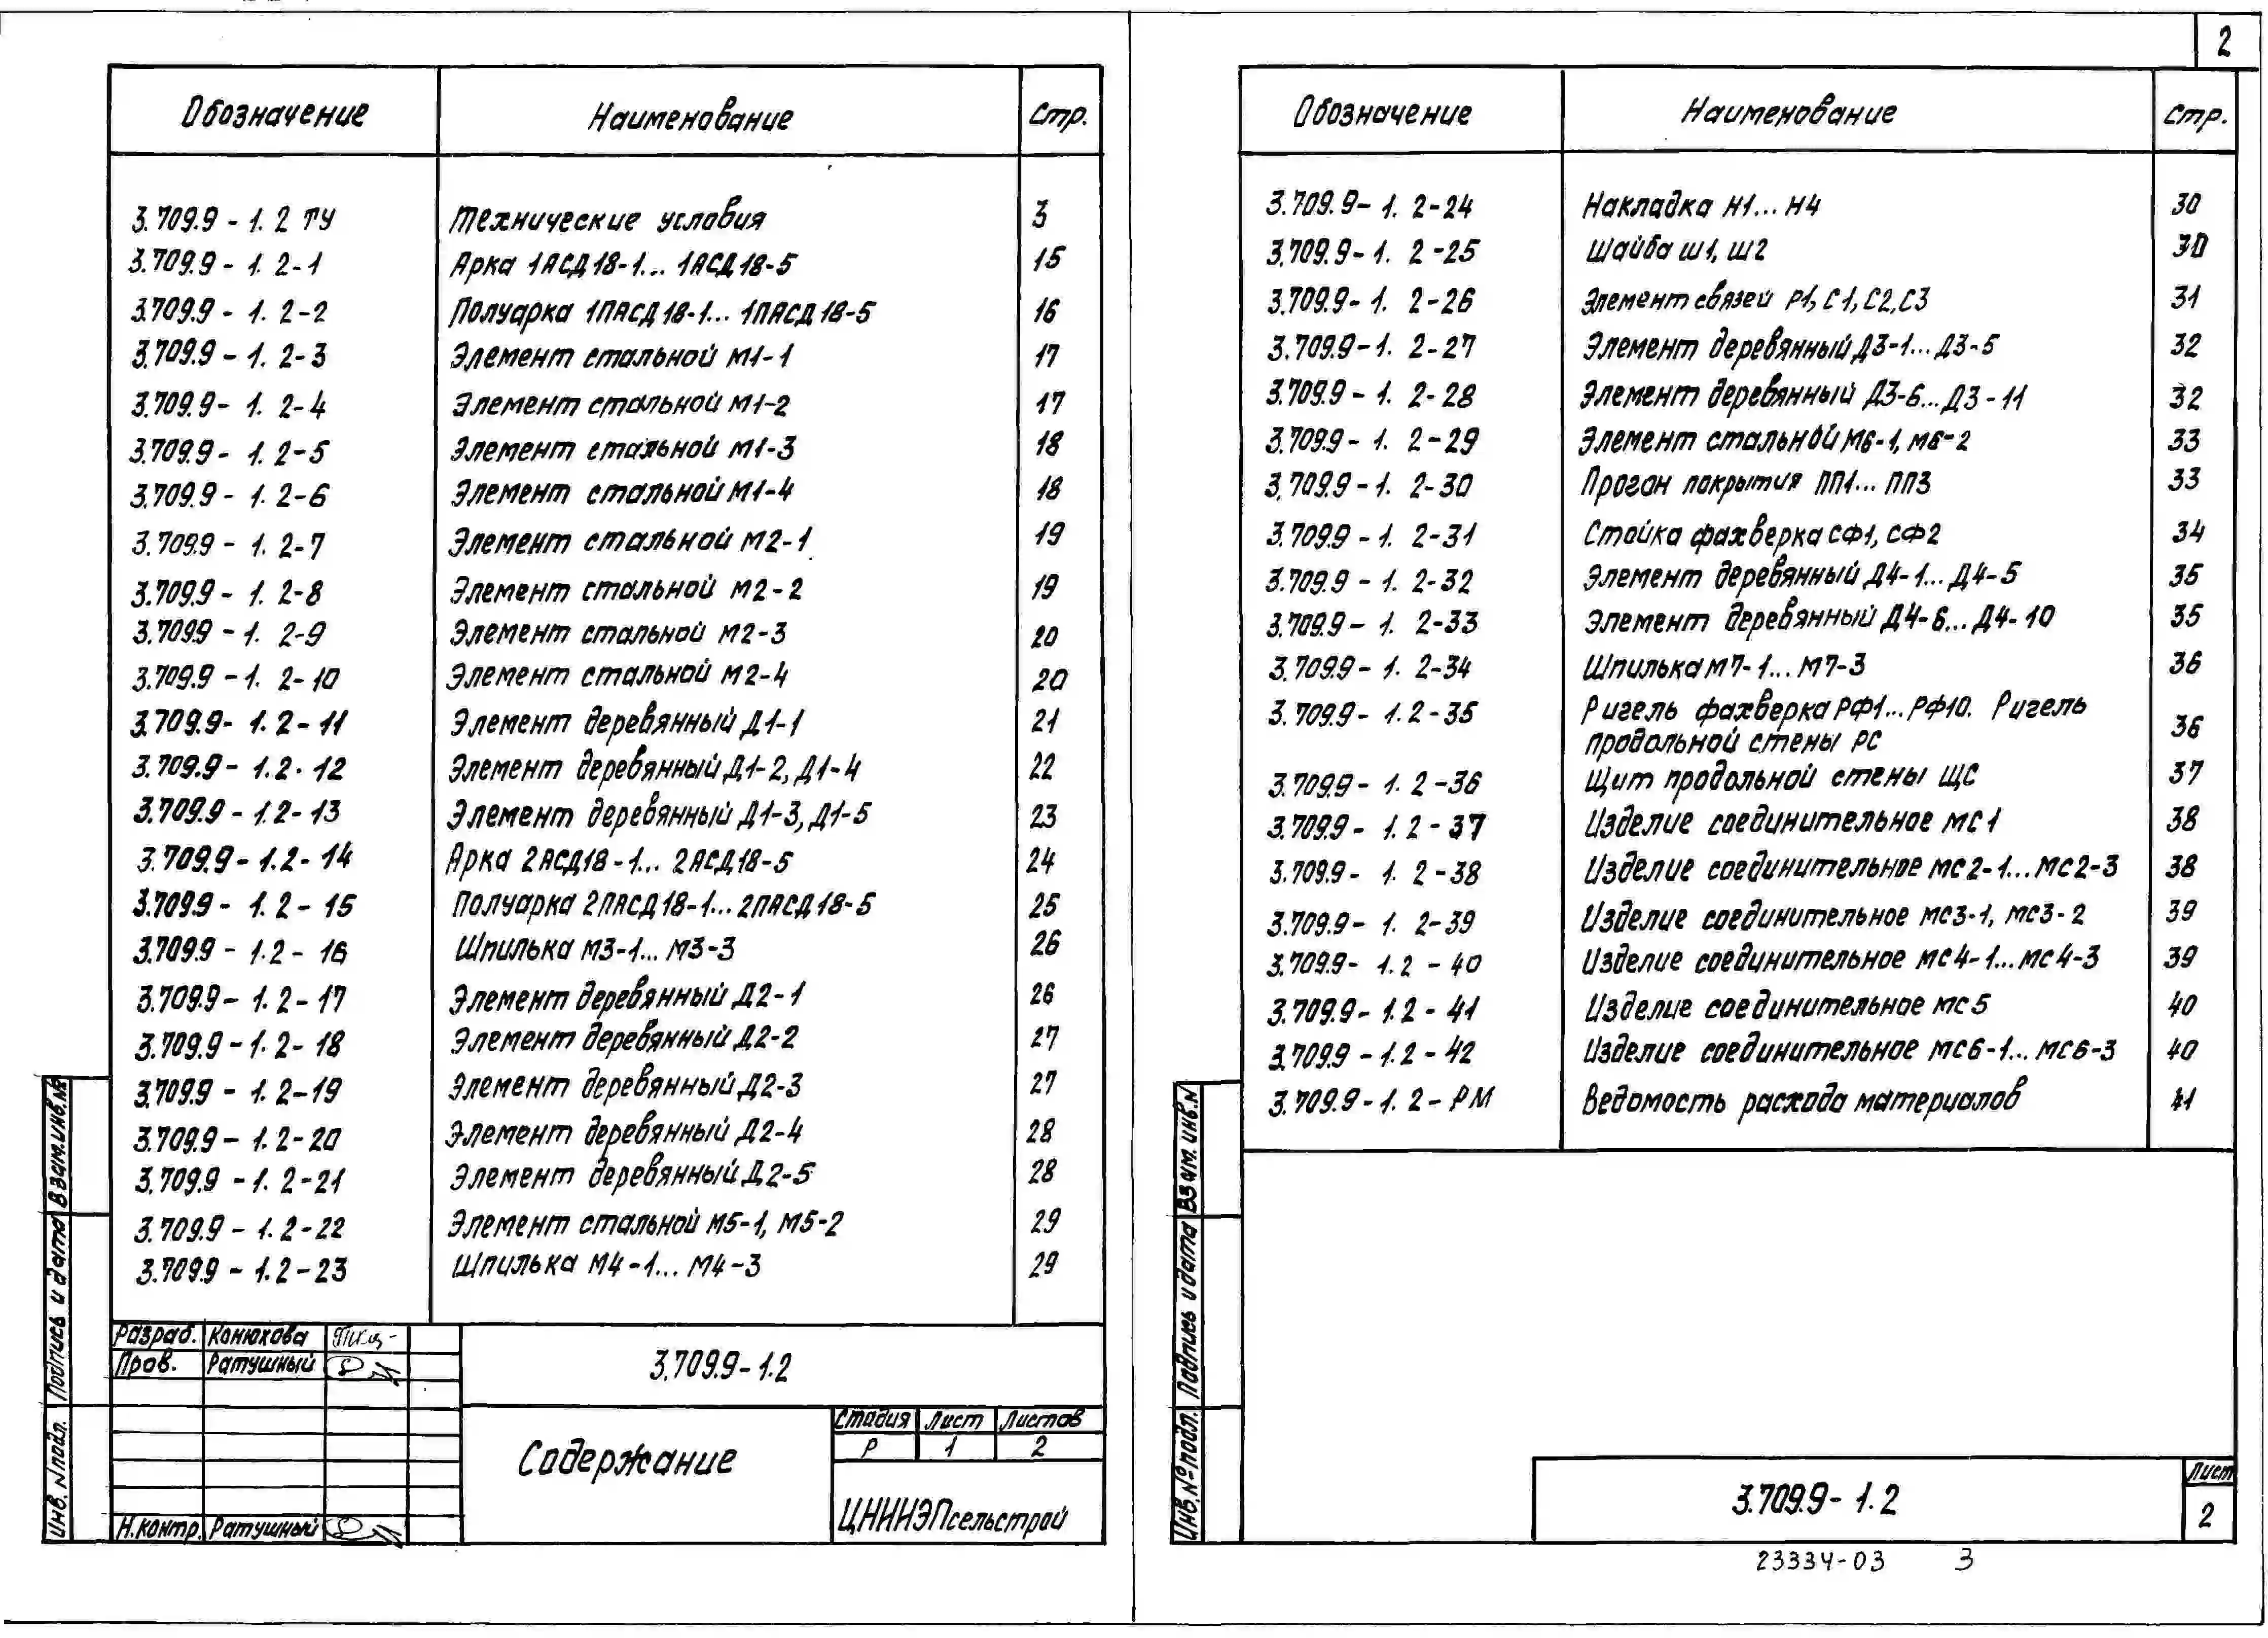 2
Обозначение Наименование Стр.
3.709.9-1.2 ТУ Технические условия 3
3.709.9-1.2-1 Арка 1АСД18-1...1АСД18-5 15
3.709.9-1.2-2 Полуарка 1ПАСД18-1...1ПАСД18-5 16
3.709.9-1.2-3 Элемент стальной М1-1 17
3.709.9-1.2-4 Элемент стальной М1-2 17
3.709.9-1.2-5 Элемент стальной М1-3 18
3.709.9-1.2-6 Элемент стальной М1-4 18
3.709.9-1.2-7 Элемент стальной М2-1 19
3.709.9-1.2-8 Элемент стальной М2-2 19
3.709.9-1.2-9 Элемент стальной М2-3 20
3.709.9-1.2-10 Элемент стальной М2-4 20
3.709.9-1.2-11 Элемент деревянный Д1-1 21
3.709.9-1.2-12 Элемент деревянный Д1-2, Д1-4 22
3.709.9-1.2-13 Элемент деревянный Д1-3, Д1-5 23
3.709.9-1.2-14 Арка 2АСД18-1...2АСД18-5 24
3.709.9-1.2-15 Полуарка 2ПАСД18-1...2ПАСД18-5 25
3.709.9-1.2-16 Шпилька М3-1...М3-3 26
3.709.9-1.2-17 Элемент деревянный Д2-1 26
3.709.9-1.2-18 Элемент деревянный Д2-2 27
3.709.9-1.2-19 Элемент деревянный Д2-3 27
3.709.9-1.2-20 Элемент деревянный Д2-4 28
3.709.9-1.2-21 Элемент деревянный Д2-5 28
3.709.9-1.2-22 Элемент стальной М5-1, М5-2 29
3.709.9-1.2-23 Шпилька М4-1...М4-3 29
Разраб. Конюхова
Пров. Ратушный
Н.контр. Ратушный
3.709.9-1.2
Содержание
Стадия Лист Листов
Р 1 2
ЦНИИЭПсельстрой
Инв. № подл. Подпись и дата Взам.инв.№
Обозначение Наименование Стр.
3.709.9-1.2-24 Накладка Н1...Н4 30
3.709.9-1.2-25 Шайба Ш1, Ш2 30
3.709.9-1.2-26 Элемент связей Р1, С1, С2, С3 31
3.709.9-1.2-27 Элемент деревянный Д3-1...Д3-5 32
3.709.9-1.2-28 Элемент деревянный Д3-6...Д3-11 32
3.709.9-1.2-29 Элемент стальной М6-1, М6-2 33
3.709.9-1.2-30 Прогон покрытия ПП1...ПП3 33
3.709.9-1.2-31 Стойка фахверка СФ1, СФ2 34
3.709.9-1.2-32 Элемент деревянный Д4-1...Д4-5 35
3.709.9-1.2-33 Элемент деревянный Д4-6...Д4-10 35
3.709.9-1.2-34 Шпилька М7-1...М7-3 36
3.709.9-1.2-35 Ригель фахверка РФ1...РФ10. Ригель
продольной стены РС 36
3.709.9-1.2-36 Щит продольной стены ЩС 37
3.709.9-1.2-37 Изделие соединительное МС1 38
3.709.9-1.2-38 Изделие соединительное МС2-1...МС2-3 38
3.709.9-1.2-39 Изделие соединительное МС3-1, МС3-2 39
3.709.9-1.2-40 Изделие соединительное МС4-1...МС4-3 39
3.709.9-1.2-41 Изделие соединительное МС5 40
3.709.9-1.2-42 Изделие соединительное МС6-1...МС6-3 40
3.709.9-1.2-РМ Ведомость расхода материалов 41
Инв. № подл. Подпись и дата Взам. инв. №
3.709.9-1.2
Лист
2
23334-03 3